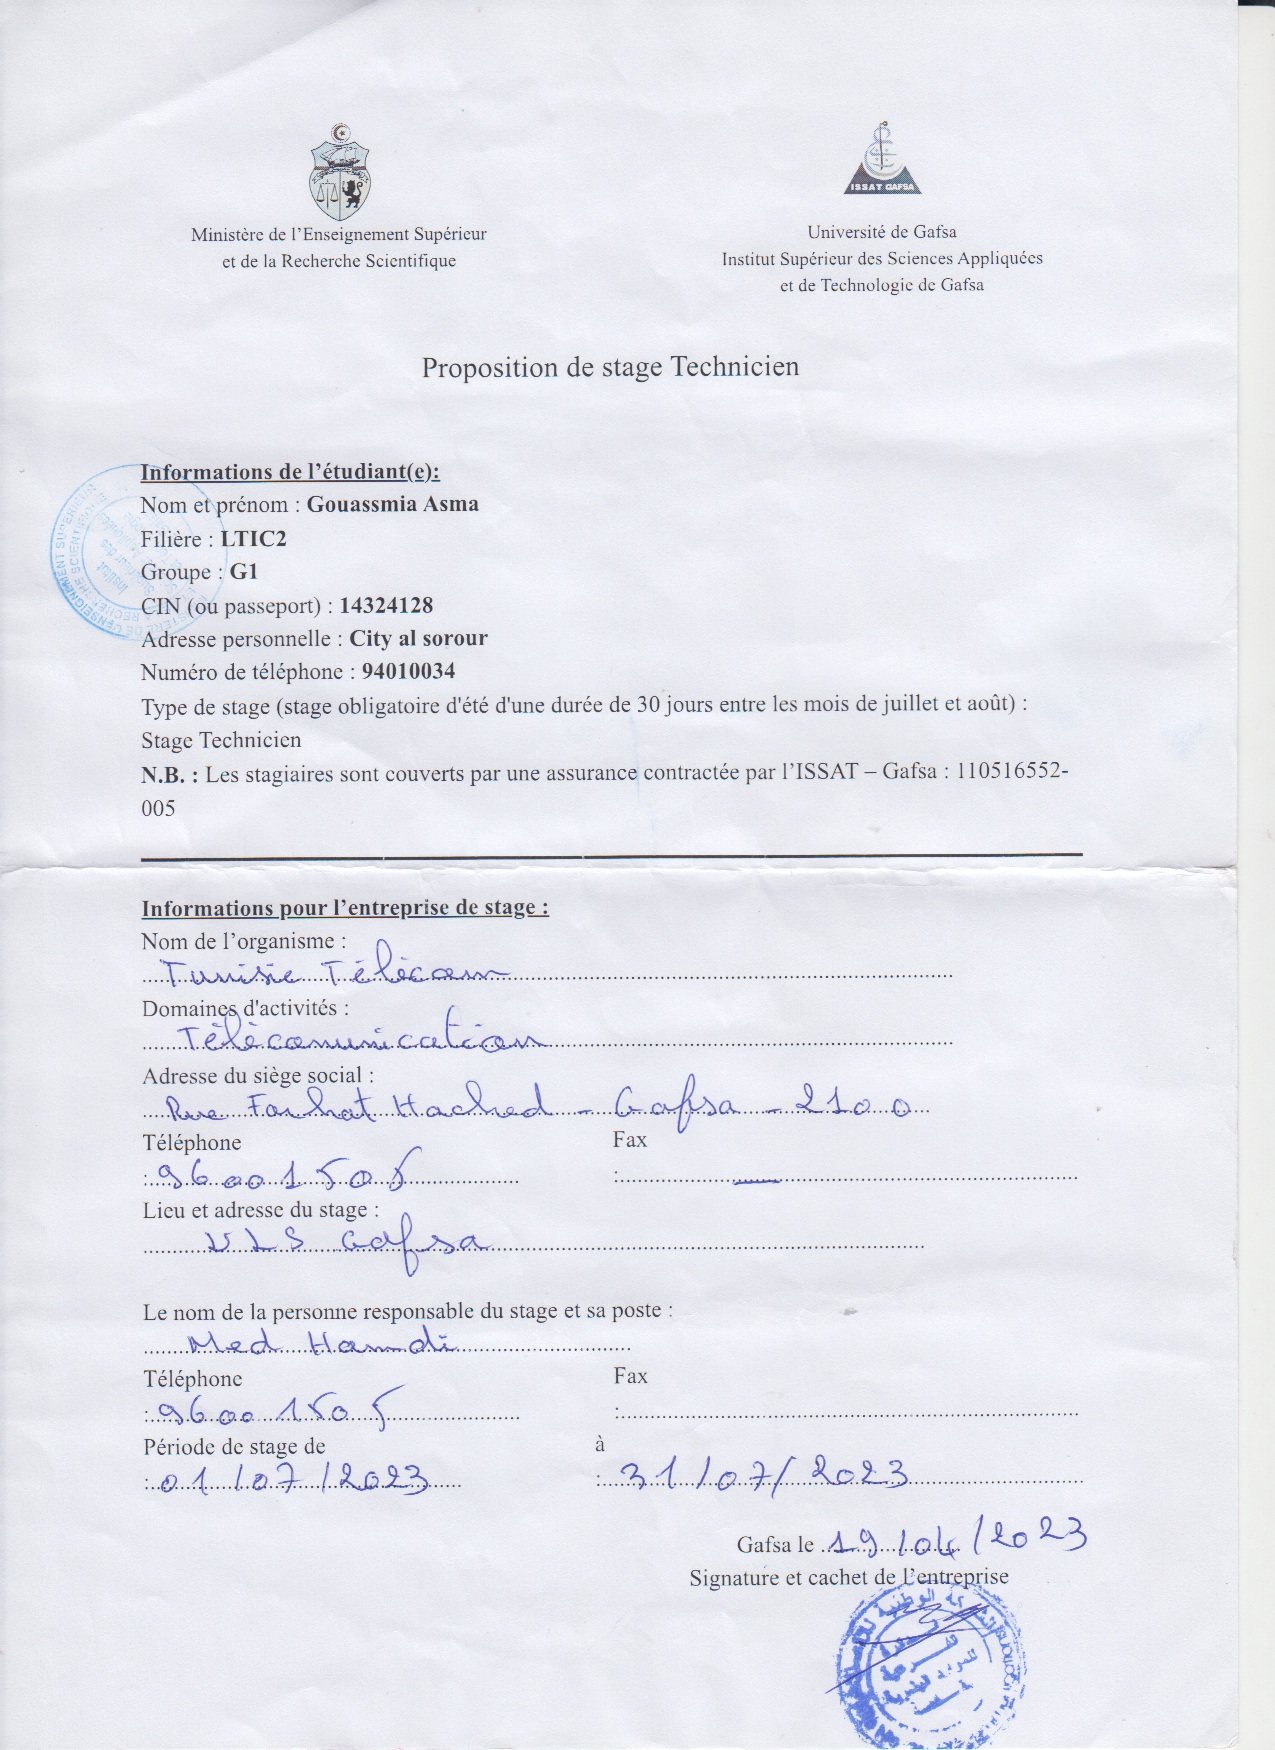 ISSAT GAFSA
Ministère de l'Enseignement Supérieur
et de la Recherche Scientifique
Université de Gafsa
Institut Supérieur des Sciences Appliquées
et de Technologie de Gafsa
Proposition de stage Technicien
Informations de l'étudiant(e):
Nom et prénom : Gouassmia Asma
Filière : LTIC2
Groupe : G1
CIN (ou passeport) : 14324128
Adresse personnelle : City al sorour
Numéro de téléphone : 94010034
Type de stage (stage obligatoire d'été d'une durée de 30 jours entre les mois de juillet et août) :
Stage Technicien
N.B. : Les stagiaires sont couverts par une assurance contractée par l'ISSAT – Gafsa : 110516552-
005
Informations pour l'entreprise de stage :
Nom de l'organisme :
Tunisie Télécom
Domaines d'activités :
Télécomunication
Adresse du siège social :
Rue Farhat Hached - Gafsa - 2100
Téléphone Fax
: 96001505 : —
Lieu et adresse du stage :
ULS Gafsa
Le nom de la personne responsable du stage et sa poste :
Med Hamdi
Téléphone Fax
: 96001505 :
Période de stage de à
: 01/07/2023 : 31/07/2023
Gafsa le 19/04/2023
Signature et cachet de l'entreprise